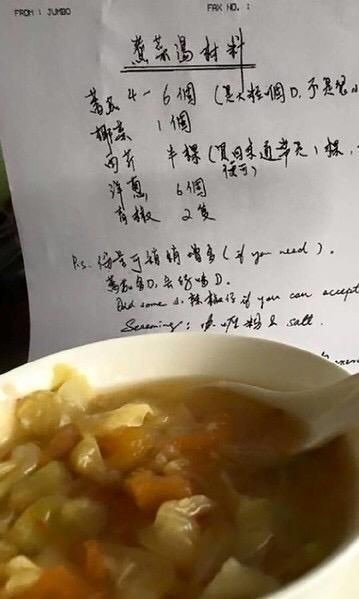 FROM : JUMBO FAX NO. :
菜湯材料
蕃茄 4-6個 (大粒個D,不是
椰菜 1個
西芹 半棵 (買回來通常是1棵,
便可)
洋蔥 6個
青椒 2隻
P.s. 份量可稍稍增多 (if you need).
蕃茄多D, 會好D.
Add some 辣椒仔 if you can accept
Seasoning: 粉 & salt.